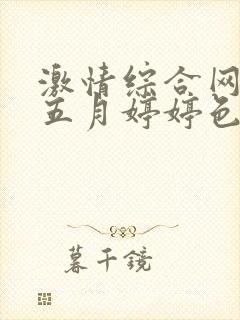 激情综合网
五月婷婷色
暮千镜